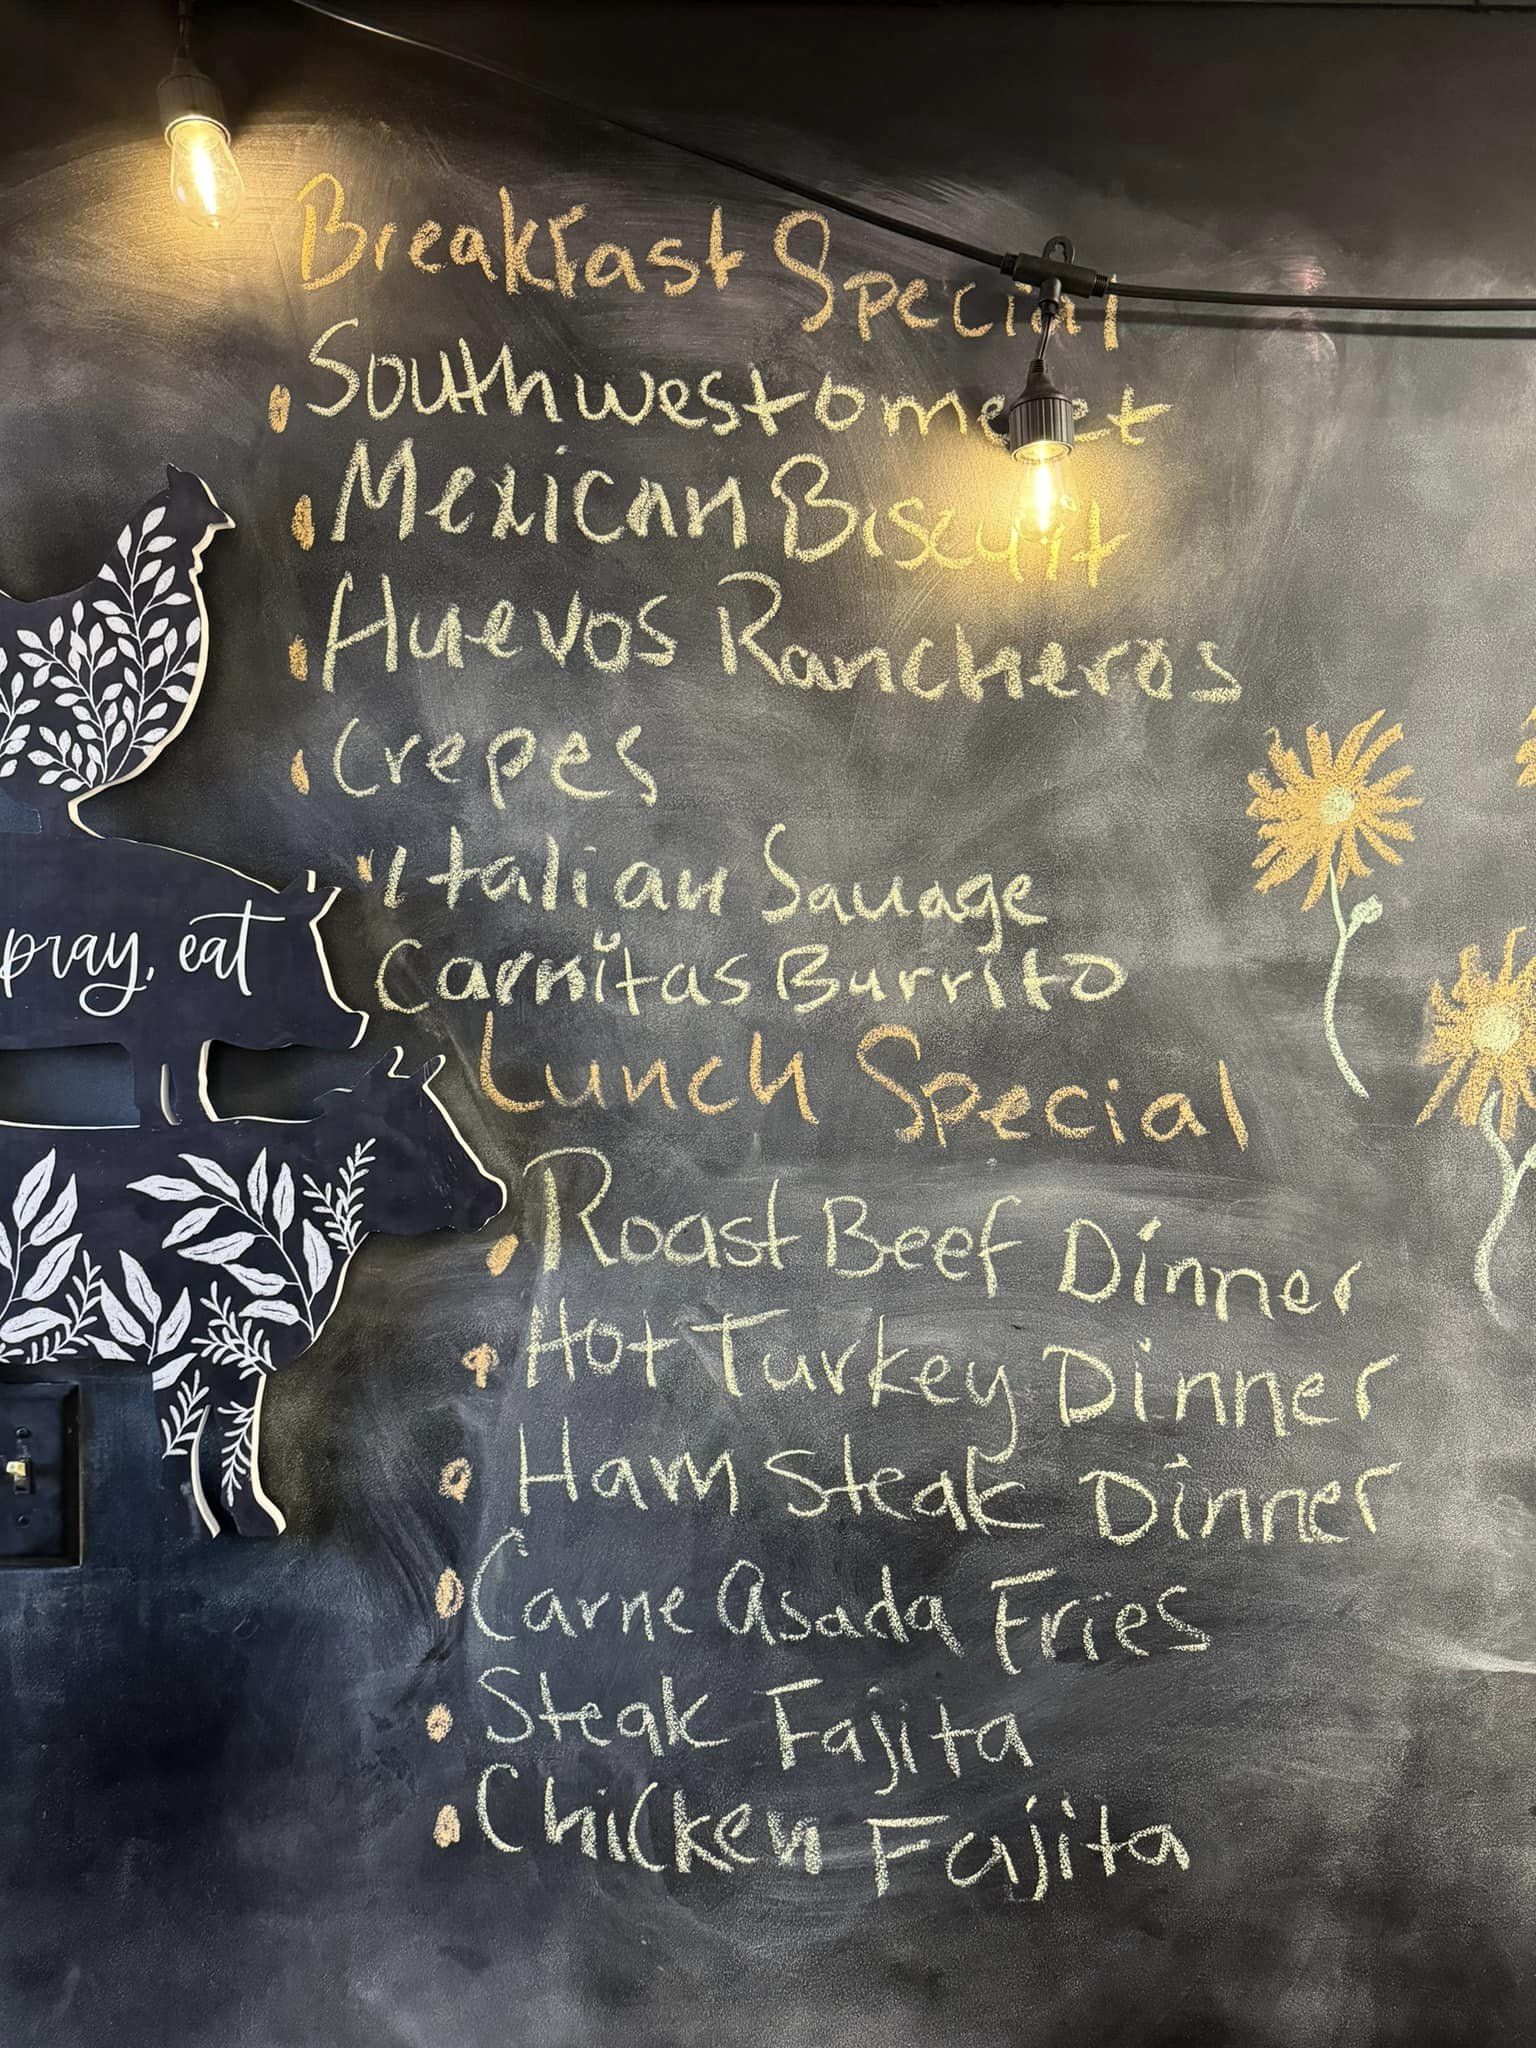 Breakfast Special
Southwest Omelet
Mexican Biscuit
Huevos Rancheros
Crepes
Italian Sauage
Carnitas Burrito
pray, eat
Lunch Special
Roast Beef Dinner
Hot Turkey Dinner
Ham Steak Dinner
Carne Asada Fries
Steak Fajita
Chicken Fajita